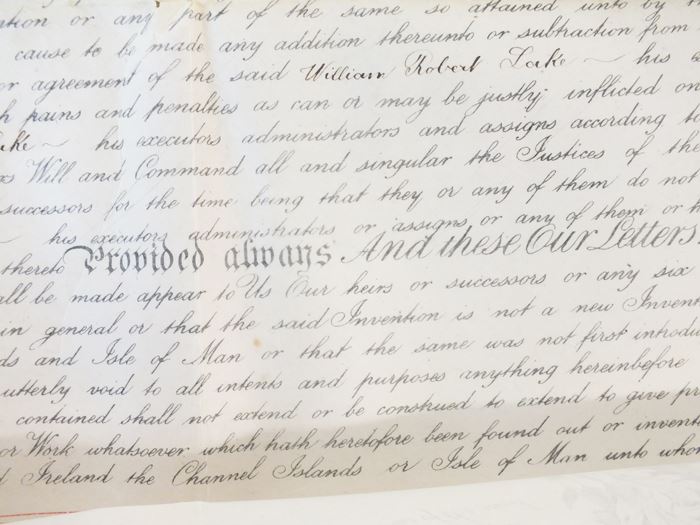 ntion or any part of the same so attained unto by t
cause to be made any addition thereunto or subtraction from
or agreement of the said William Robert Lake his
h pains and penalties as can or may be justly inflicted on
ake his executors administrators and assigns according to
Will and Command all and singular the Justices of the
successors for the time being that they or any of them do not
his executors administrators or assigns or any of them or
thereto Provided always And these Our Letters
all be made appear to Us Our heirs or successors or any six
in general or that the said Invention is not a new Invent
ds and Isle of Man or that the same was not first introdu
utterly void to all intents and purposes anything hereinbefore
contained shall not extend or be construed to extend to give pr
or Work whatsoever which hath heretofore been found out or invent
d Ireland the Channel Islands or Isle of Man unto whom